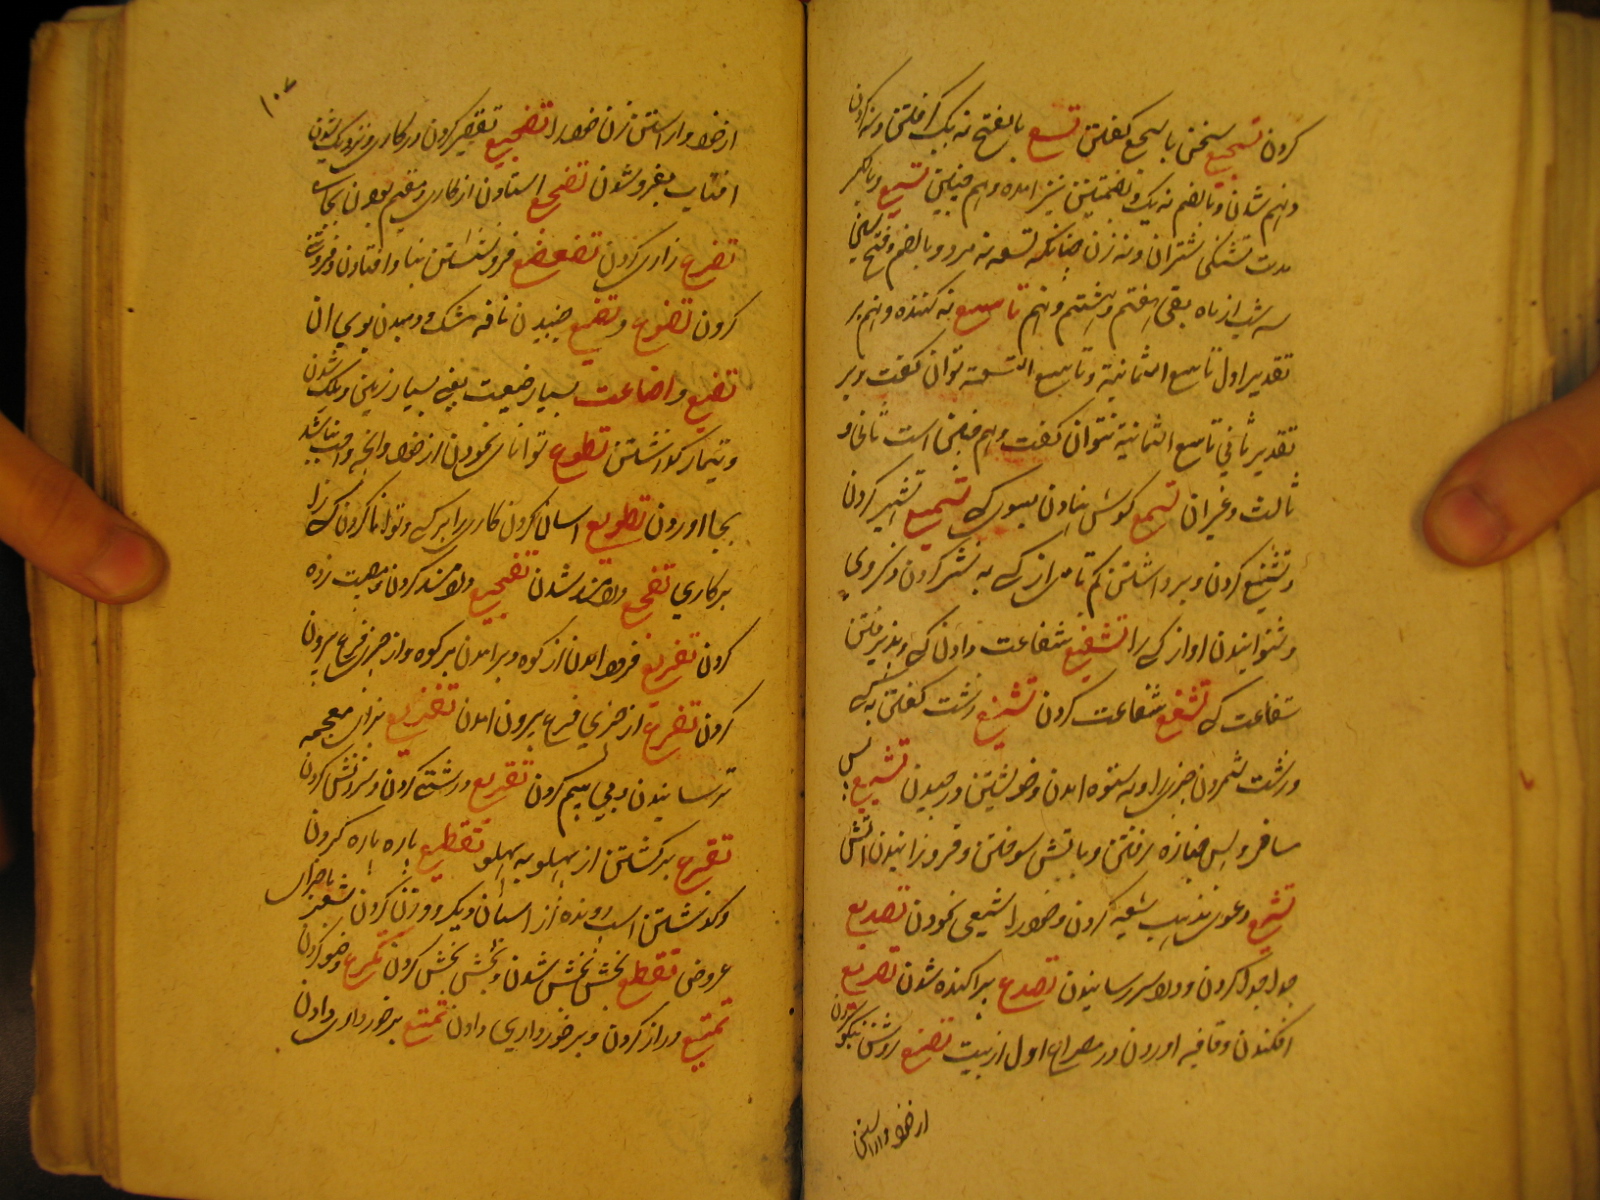 کردن تسجیع سخن با سجع گفتن تسع بالفتح نه یک گرفتن و نه کردن
و نهم شدن و بالضم نه یک و بضمتین نیز امده و هم چنین تسیع و بالکسر
مدت تشنگی شتران و نه زن چنانکه تسعه نه مرد و بالضم و فتح سین
سه شب از ماه یعنی هفتم و هشتم و نهم تاسع نه کننده و نهم بر
تقدیر اول تاسع الثمانیة و تاسع التسعة توان گفت و بر
تقدیر ثانی تاسع الثمانیة نتوان گفت و هم چنین است ثانی و
ثالث و غیر ان تسمع گوش نهادن بسوی کسی تسمیع تشهیر کردن
و تشنیع کردن و برداشتن گم نامی از کسی به نشر کردن
و شنوانیدن اواز کسی را تشفیع شفاعت دادن کسی و پذیرفتن
شفاعت کسی تشفع شفاعت کردن تشنیع زشت گفتن به کسی
و زشت شمردن چیزی را و به ستوه امدن تشییع پس
مسافر و پس جنازه رفتن و باتش سوختن و فروزانیدن اتش
تشیع دعوی مذهب شیعه کردن و خود را شیعی نمودن تصدیع
جدا جدا کردن و درد سر رسانیدن تصدع پراکنده شدن تصریع
افکندن و قافیه اوردن در مصراع اول از بیت تصنع روش نیکو کردن
از خود و اراستن
۱۰۷
از خود و اراستن زن خود را تضجیع تقصیر کردن در کاری و نزدیک شدن
افتاب بغروب شدن تضجع استادن از کاری و مقیم بودن بجای
تضرع زاری کردن تضعضع فرو نشستن بنا و افتادن و فروتنی
کردن تضوع و تضیع جنبیدن نافه مشک و دمیدن بوی ان
تضیع و اضاعت بسیار ضیعت یعنی بسیار زمین و ملک شدن
و تیمار گذاشتن تطوع توانای نمودن از خود و انچه واجب نباشد
بجا اوردن تطویع اسان کردن کاری را بر کسی و توانا کردن کسی را
بر کاری تفجع دردمند شدن تفجیع دردمند کردن و مصیبت زده
کردن تفریع فرود امدن از کوه و بر امدن بر کوه و از چیزی فرع بیرون
کردن تفرع از چیزی فرع بیرون امدن تفزیع بزای معجمه
ترسانیدن و بی بیم کردن تقریع درشتی کردن و سرزنش کردن
تقرع برگشتن از پهلو به پهلو تقطیع پاره پاره کردن
و گذشتن اسپ رونده از اسپان دیگر و وزن کردن شعر باجزای
عروض تقطع بخش بخش شدن و بخش بخش کردن تکرع وضو کردن
تمتیع دراز کردن و برخورداری دادن تمتع برخورداری دادن